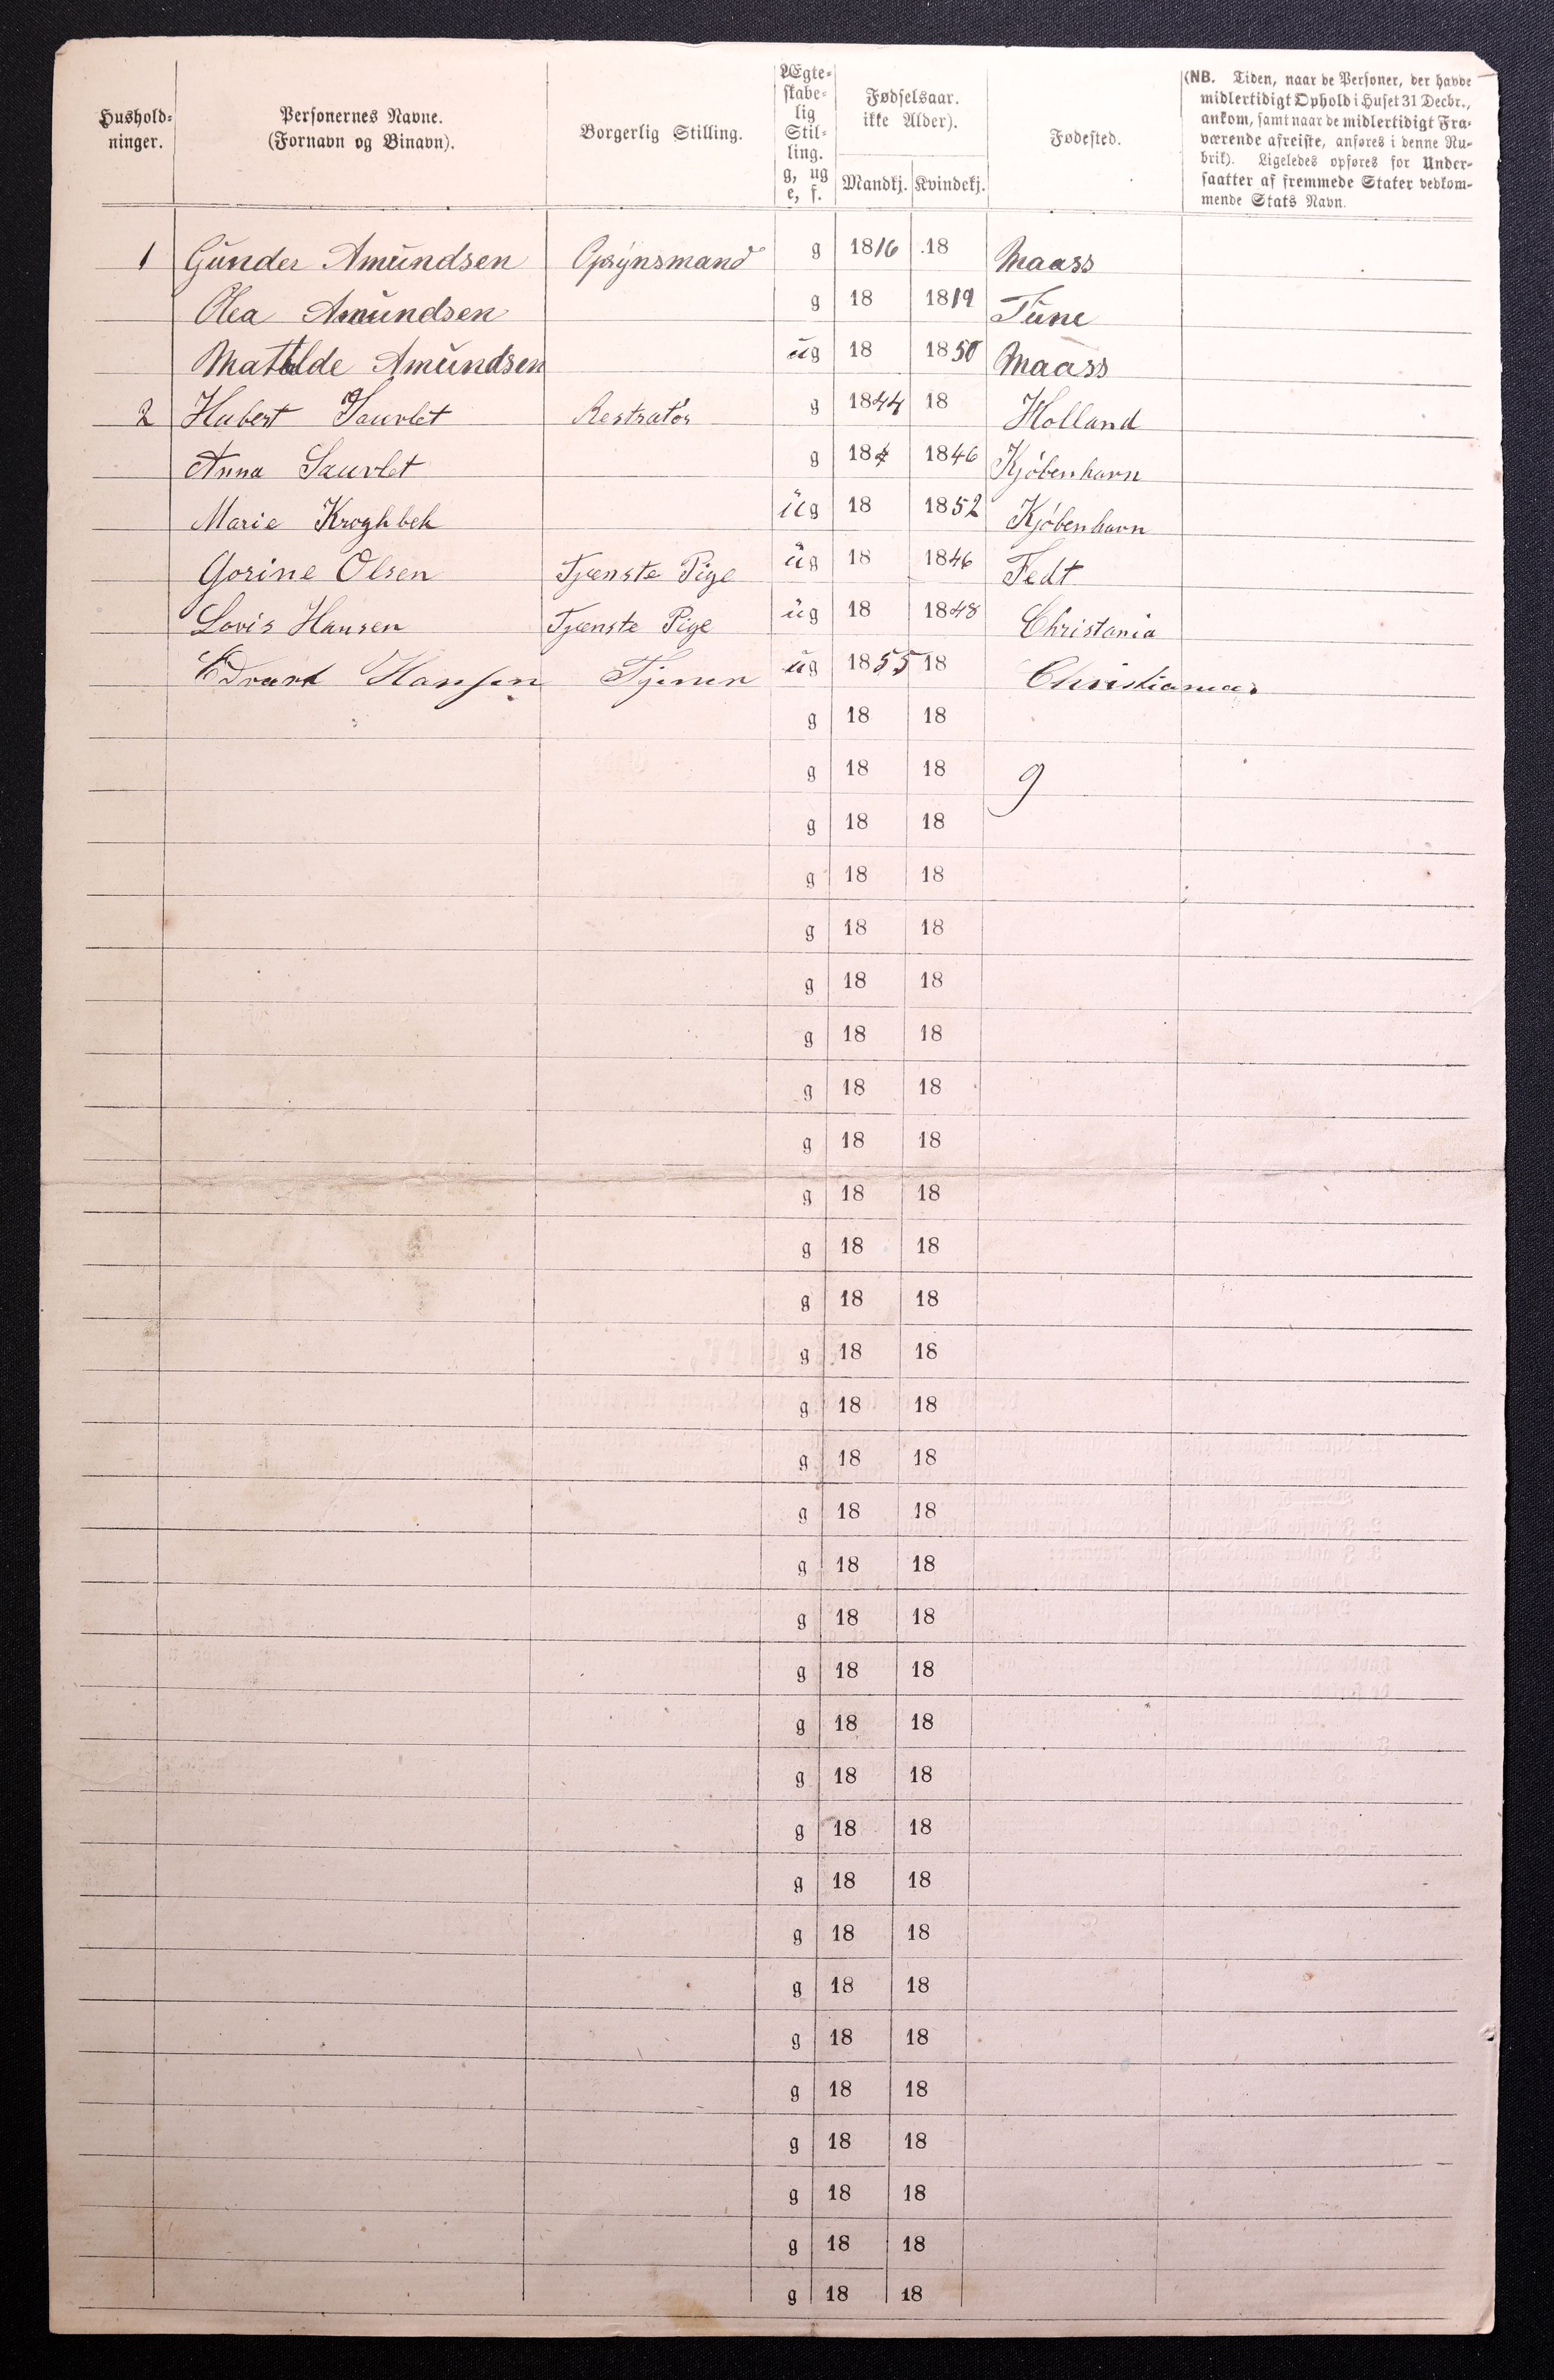 Hushold-
ninger.
Personernes Navne.
(Fornavn og Binavn).
Borgerlig Stilling.
Ægte-
skabe-
lig
Stil-
ling.
g, ug
e, f.
Fødselsaar.
ikke Alder).
Mandkj. Kvindekj.
Fødested.
(NB. Tiden, naar de Personer, der havde
midlertidigt Ophold i Huset 31 Decbr.,
ankom, samt naar de midlertidigt Fra-
værende afreiste, anføres i denne Ru-
brik). Ligeledes opføres for Under-
saatter af fremmede Stater vedkom-
mende Stats Navn.
1 Gunder Amundsen Opsynsmand g 1816 18 Maass
Olea Amundsen g 18 1819 Tune
Mathilde Amundsen ug 18 1850 Maass
2 Hubert Sauvlet Restratør g 1844 18 Holland
Anna Sauvlet g 18 1846 Kjøbenhavn
Marie Kroghbek ug 18 1852 Kjøbenhavn
Gorine Olsen Tjenste Pige ug 18 1846 Fedt
Lovis Hansen Tjenste Pige ug 18 1848 Christania
Edvard Hansen Tjener ug 1855 18 Christiania
g 18 18
g 18 18 9
g 18 18
g 18 18
g 18 18
g 18 18
g 18 18
g 18 18
g 18 18
g 18 18
g 18 18
g 18 18
g 18 18
g 18 18
g 18 18
g 18 18
g 18 18
g 18 18
g 18 18
g 18 18
g 18 18
g 18 18
g 18 18
g 18 18
g 18 18
g 18 18
g 18 18
g 18 18
g 18 18
g 18 18
g 18 18